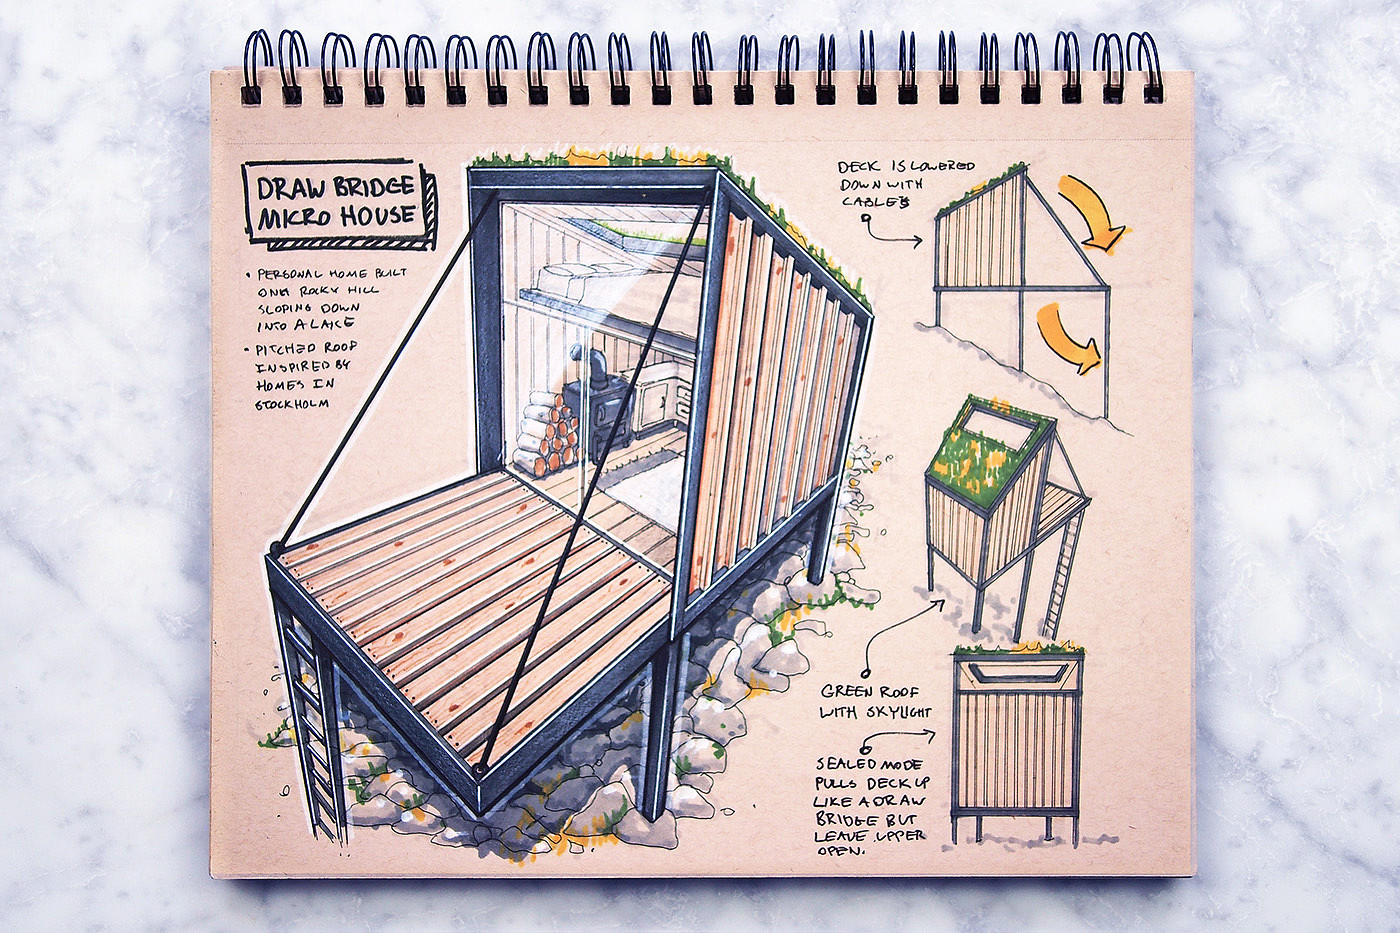 DRAW BRIDGE
MICRO HOUSE
• PERSONAL HOME BUILT
ON A ROCKY HILL
SLOPING DOWN
INTO A LAKE
• PITCHED ROOF
INSPIRED BY
HOMES IN
STOCKHOLM
DECK IS LOWERED
DOWN WITH
CABLES
GREEN ROOF
WITH SKYLIGHT
SEALED MODE
PULLS DECK UP
LIKE A DRAW
BRIDGE BUT
LEAVE UPPER
OPEN.